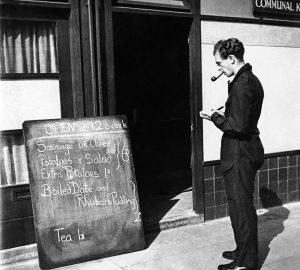 COMMUNAL K
OPEN at 12 o'clock
Sausage or Cheese
Potatoes & Salad } 6
Extra Potatoes 1D
Boiled Date and
Rhubarb Pudding } 2
Tea 1D